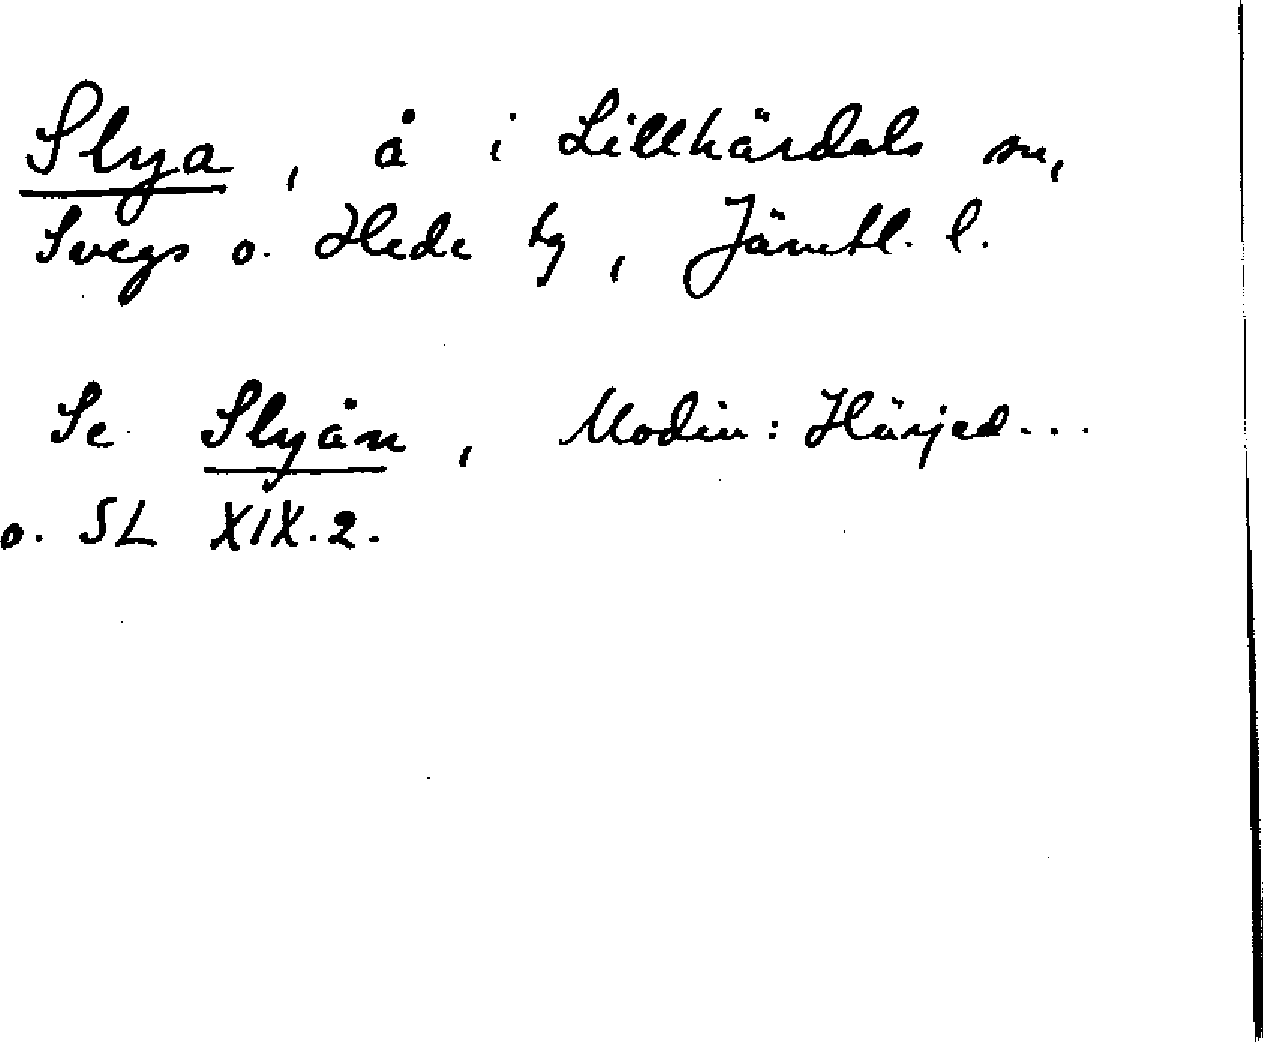 Slya, å i Lillhärdals sn,
Svegs o. Hede tg, Jämtl. l.
Se Slyån, Modin: Härjed...
o. SL XIX.2.